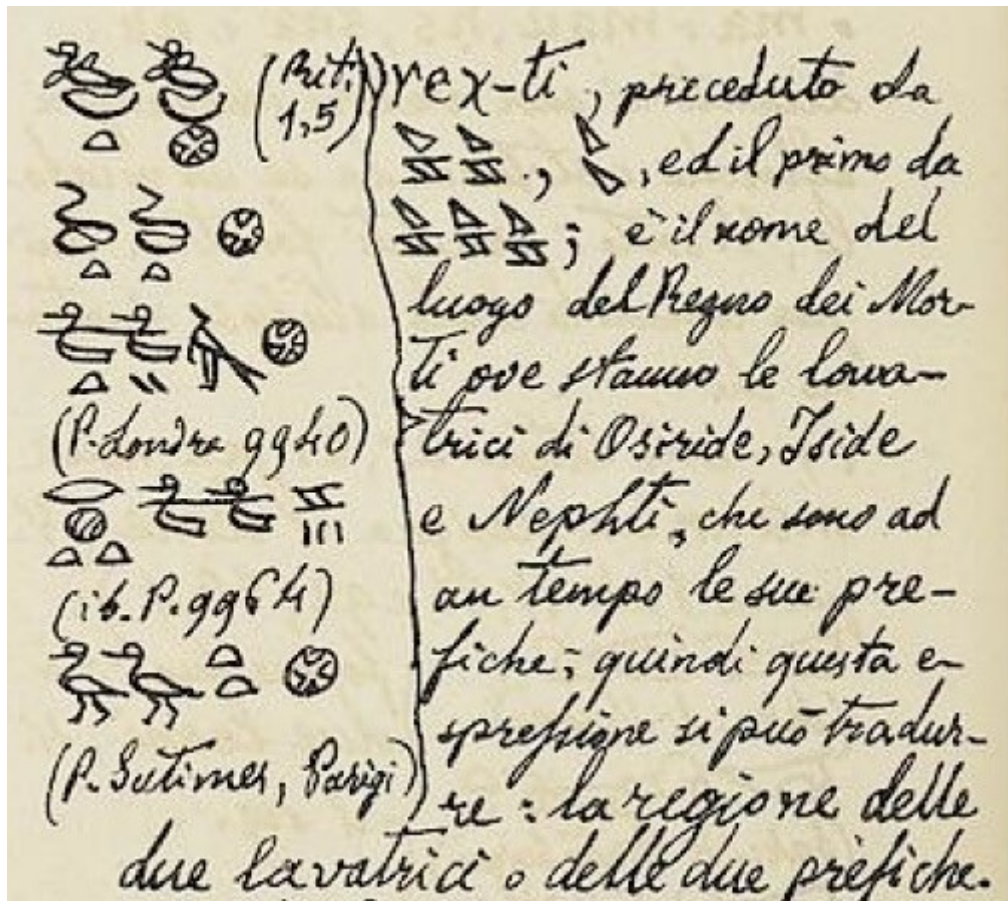 (Rit.
1,5)
(P. Londra 9940)
(ib. P. 9964)
(P. Sutimes, Parigi)
reχ-ti, preceduto da
., , ed il primo da
; è il nome del
luogo del Regno dei Mor-
ti ove stanno le lava-
trici di Osiride, Iside
e Nephti, che sono ad
un tempo le sue pre-
fiche; quindi questa e-
spressione si può tradur-
re: la regione delle
due lavatrici o delle due prefiche.